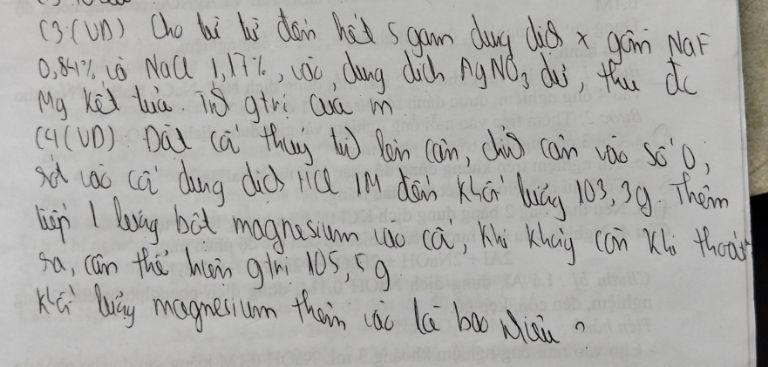 C3: (VD) Cho từ từ đến hết 5 gam dung dịch x gồm NaF
0,84% và NaCl 1,17%, vào dung dịch AgNO3 dư, thu đc
mg kết tủa. Tính gtrị của m
C4 (VD). Đặt cốc thủy tinh lên cân, chỉnh cân vào số 0,
rót vào cốc dung dịch HCl 1M đến khối lượng 103,3g. Thêm
tiếp 1 lượng bột magnesium vào cốc, khi không còn khí thoát
ra, cân thể hiện gtrị 105,5g.
Khối lượng magnesium thêm vào là bao nhiêu?